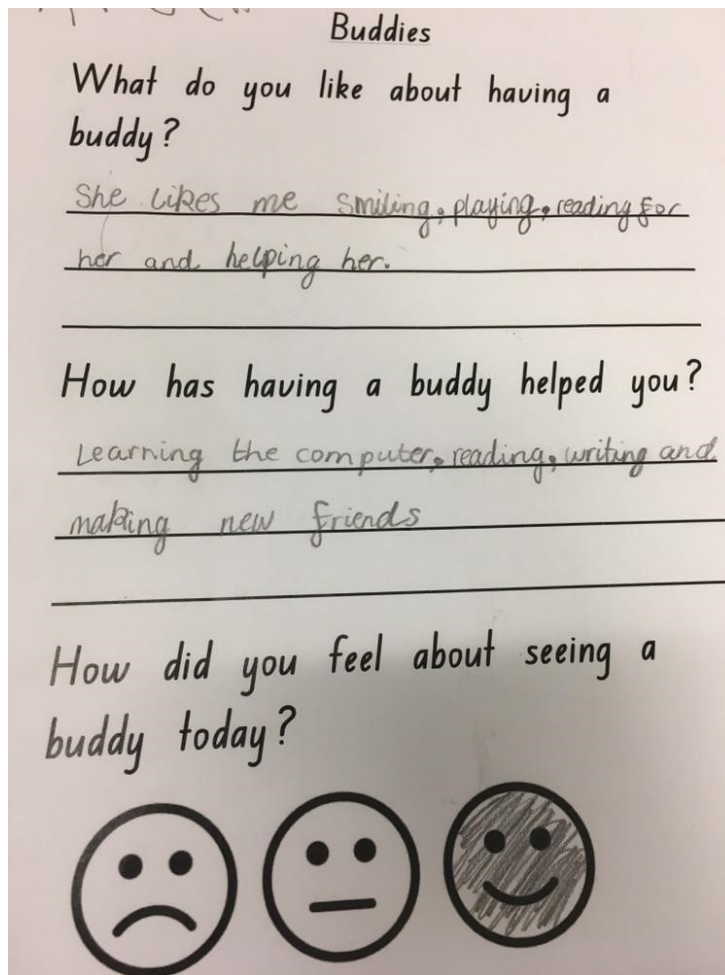 Buddies
What do you like about having a
buddy?
She likes me smiling, playing, reading for
her and helping her.
How has having a buddy helped you?
Learning the computer, reading, writing and
making new friends
How did you feel about seeing a
buddy today?